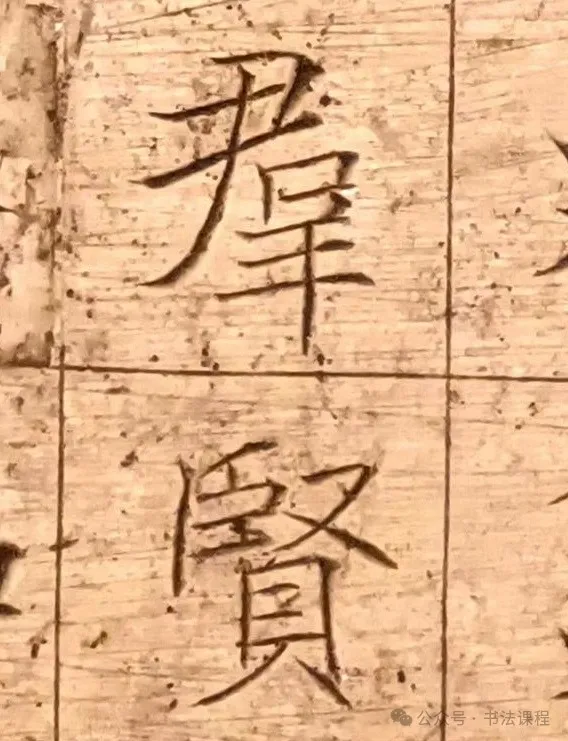 羣
賢
公众号 · 书法课程